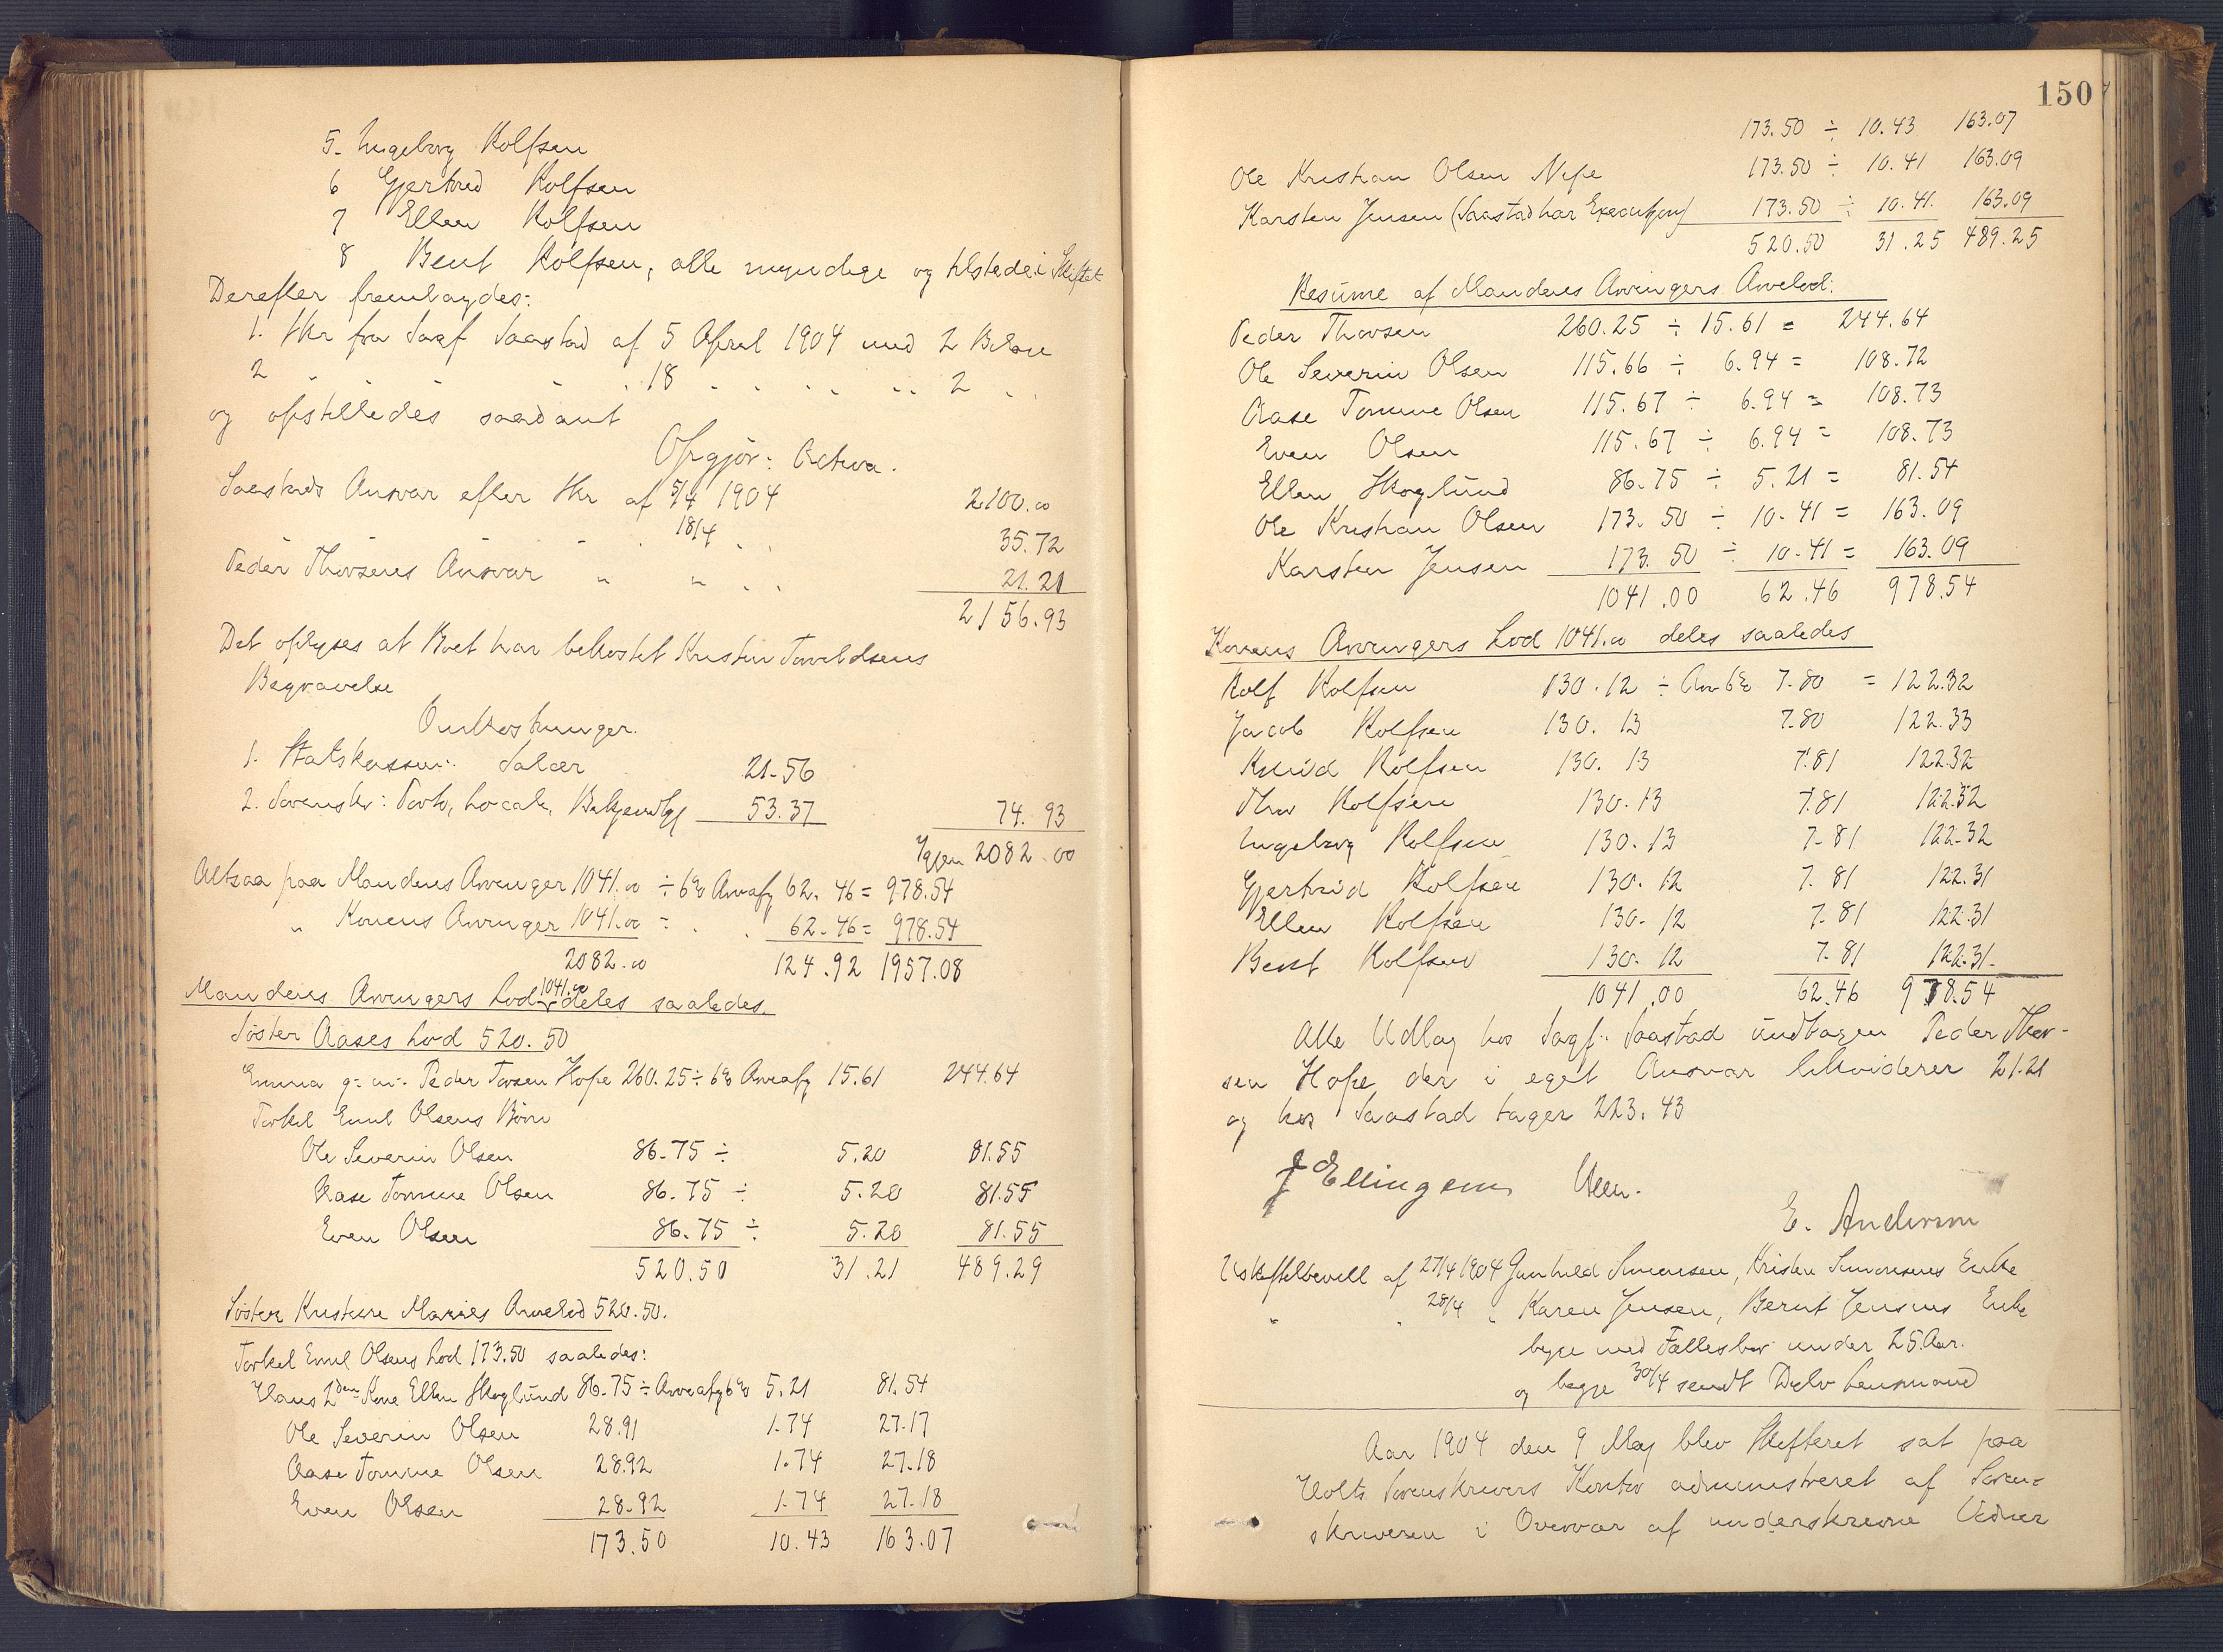 5. Ingeborg Rolfsen
6 Gjertrud Rolfsen
7 Ellen Rolfsen
8 Bent Rolfsen, alle myndige og tilstede i Skiftet
Derefter fremlagdes:
1. Skr fra Sagf Saastad af 5 April 1904 med 2 Bilage
2 " " " " " 18 " " " " 2 "
og opstilledes saadant
Opgjør: Activa.
Saastads Ansvar efter Skr af 5/4 1904 2100.00
" " " 18/4 " " 35.72
Peder Thorsens Ansvar " " " " 21.21
2156.93
Det oplyses at Boet har bekostet Kristen Tarvildsens
Begravelse
Omkostninger.
1. Statskassen: Salær 21.56
2. Sorenskr: Porto, Locale, Bekjendtg 53.37 74.93
Igjen 2082.00
Altsaa paa Mandens Arvinger 1041.00 ÷ 6% Arveafg 62.46 = 978.54
" Konens Arvinger 1041.00 ÷ " " 62.46 = 978.54
2082.00 124.92 1957.08
Mandens Arvingers Lod 1041.00 deles saaledes.
Søster Aases Lod 520.50
Emma g: m: Peder Torsen Hope 260.25 ÷ 6% Arveafg 15.61 244.64
Torkel Emil Olsens Børn
Ole Severin Olsen 86.75 ÷ 5.20 81.55
Aase Tomine Olsen 86.75 ÷ 5.20 81.55
Even Olsen 86.75 ÷ 5.20 81.55
520.50 31.21 489.29
Søster Kristine Maries Arvelod 520.50.
Torkel Emil Olsens Lod 173.50 saaledes:
Hans 2den Kone Ellen Skoglund 86.75 ÷ Arveafg 6% 5.21 81.54
Ole Severin Olsen 28.91 1.74 27.17
Aase Tomine Olsen 28.92 1.74 27.18
Even Olsen 28.92 1.74 27.18
173.50 10.43 163.07
150
173.50 ÷ 10.43 163.07
Ole Kristian Olsen Nipe 173.50 ÷ 10.41 163.09
Karsten Jensen (Saastad har Execution) 173.50 ÷ 10.41. 163.09
520.50 31.25 489.25
Resüme af Mandens Arvingers Arvelod:
Peder Thorsen 260.25 ÷ 15.61 = 244.64
Ole Severin Olsen 115.66 ÷ 6.94 = 108.72
Aase Tomine Olsen 115.67 ÷ 6.94 = 108.73
Even Olsen 115.67 ÷ 6.94 = 108.73
Ellen Skoglund 86.75 ÷ 5.21 = 81.54
Ole Kristian Olsen 173.50 ÷ 10.41 = 163.09
Karsten Jensen 173.50 ÷ 10.41 = 163.09
1041.00 62.46 978.54
Konens Arvingers Lod 1041.00 deles saaledes
Rolf Rolfsen 130.12 ÷ Arv 6% 7.80 = 122.32
Jacob Rolfsen 130.13 7.80 122.33
Knud Rolfsen 130.13 7.81 122.32
Thor Rolfsen 130.13 7.81 122.32
Ingeborg Rolfsen 130.13 7.81 122.32
Gjertrud Rolfsen 130.12 7.81 122.31
Ellen Rolfsen 130.12 7.81 122.31
Bent Rolfsen 130.12 7.81 122.31
1041.00 62.46 978.54
Alle Udlæg hos Sagf. Saastad undtagen Peder Thor-
sen Hope, der i eget Ansvar likviderer 21.21
og hos Saastad tager 223.43
J Ellingsen
E. Andersen
Uskiftebevill af 27/4 1904 Gunhild Simonsen, Kristen Simonsens Enke
" " 28/4 " Karen Jensen, Bernt Jensens Enke
begge med Fællesbør under 25 Aar.
og begge 30/4 sendt Dybv Lensmand
Aar 1904 den 9 Maj blev Skifteret sat paa
Holts Sorenskrivers Kontor administreret af Soren-
skriveren i Overvær af underskrevne Vidner